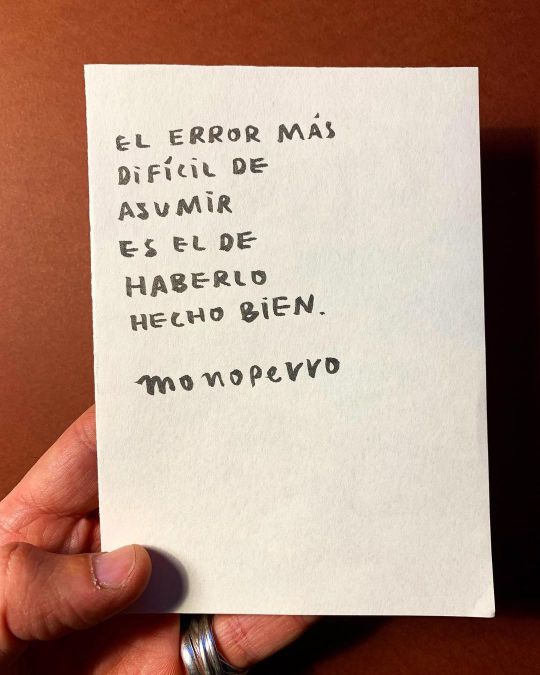 EL ERROR MÁS
DIFÍCIL DE
ASUMIR
ES EL DE
HABERLO
HECHO BIEN.
monoperro